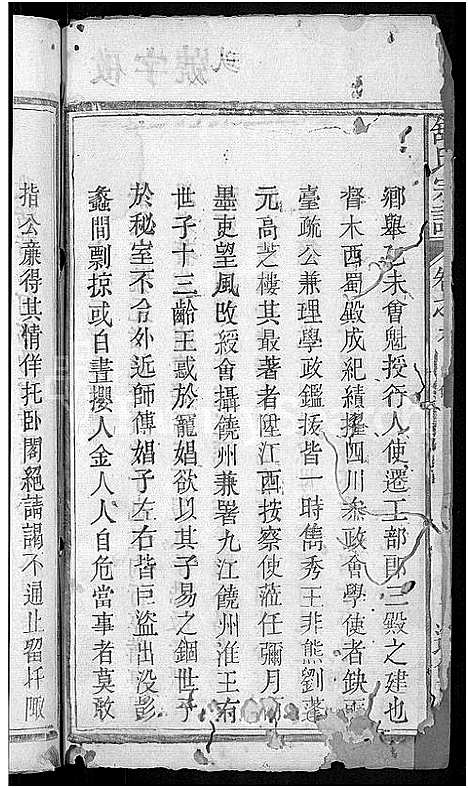 舒氏宗譜 卷之
鄉舉乙未會魁授行人使遷工部郎三殿之建也
督木西蜀殿成紀績擢四川叅政會學使者缺
臺疏公兼理學政鑑拔皆一時雋秀王非熊劉蓬
元高芝樓其最著者陞江西按察使蒞任彌月
墨吏望風改綬會攝饒州兼署九江饒州淮王有
世子十三齡王惑於寵娼欲以其子易之錮世子
於秘室不令外近師傅娼子左右皆巨盜出没彭
蠡間剽掠或白晝攖人金人人自危當事者莫敢
指公亷得其情佯托卧閣絕請謁不通止留圩陬